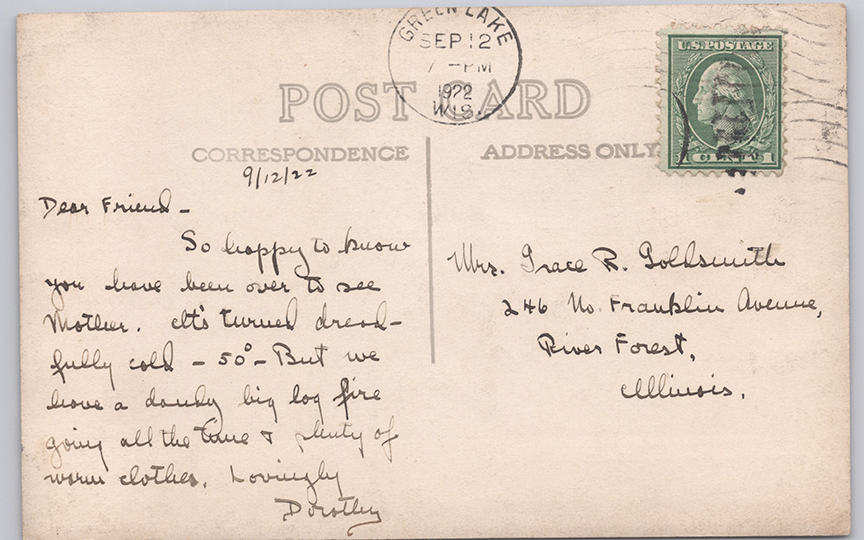 GREEN LAKE
SEP 12
7 - PM
1922
WIS.
U.S. POSTAGE
1 CENT 1
POST CARD
CORRESPONDENCE
ADDRESS ONLY
9/12/22
Dear Friend -
So happy to know
you have been over to see
Mother. It's turned dread-
fully cold - 50° - But we
have a dandy big log fire
going all the time & plenty of
warm clothes. Lovingly
Dorothy
Mrs. Grace R. Goldsmith
246 No. Franklin Avenue,
River Forest,
Illinois.